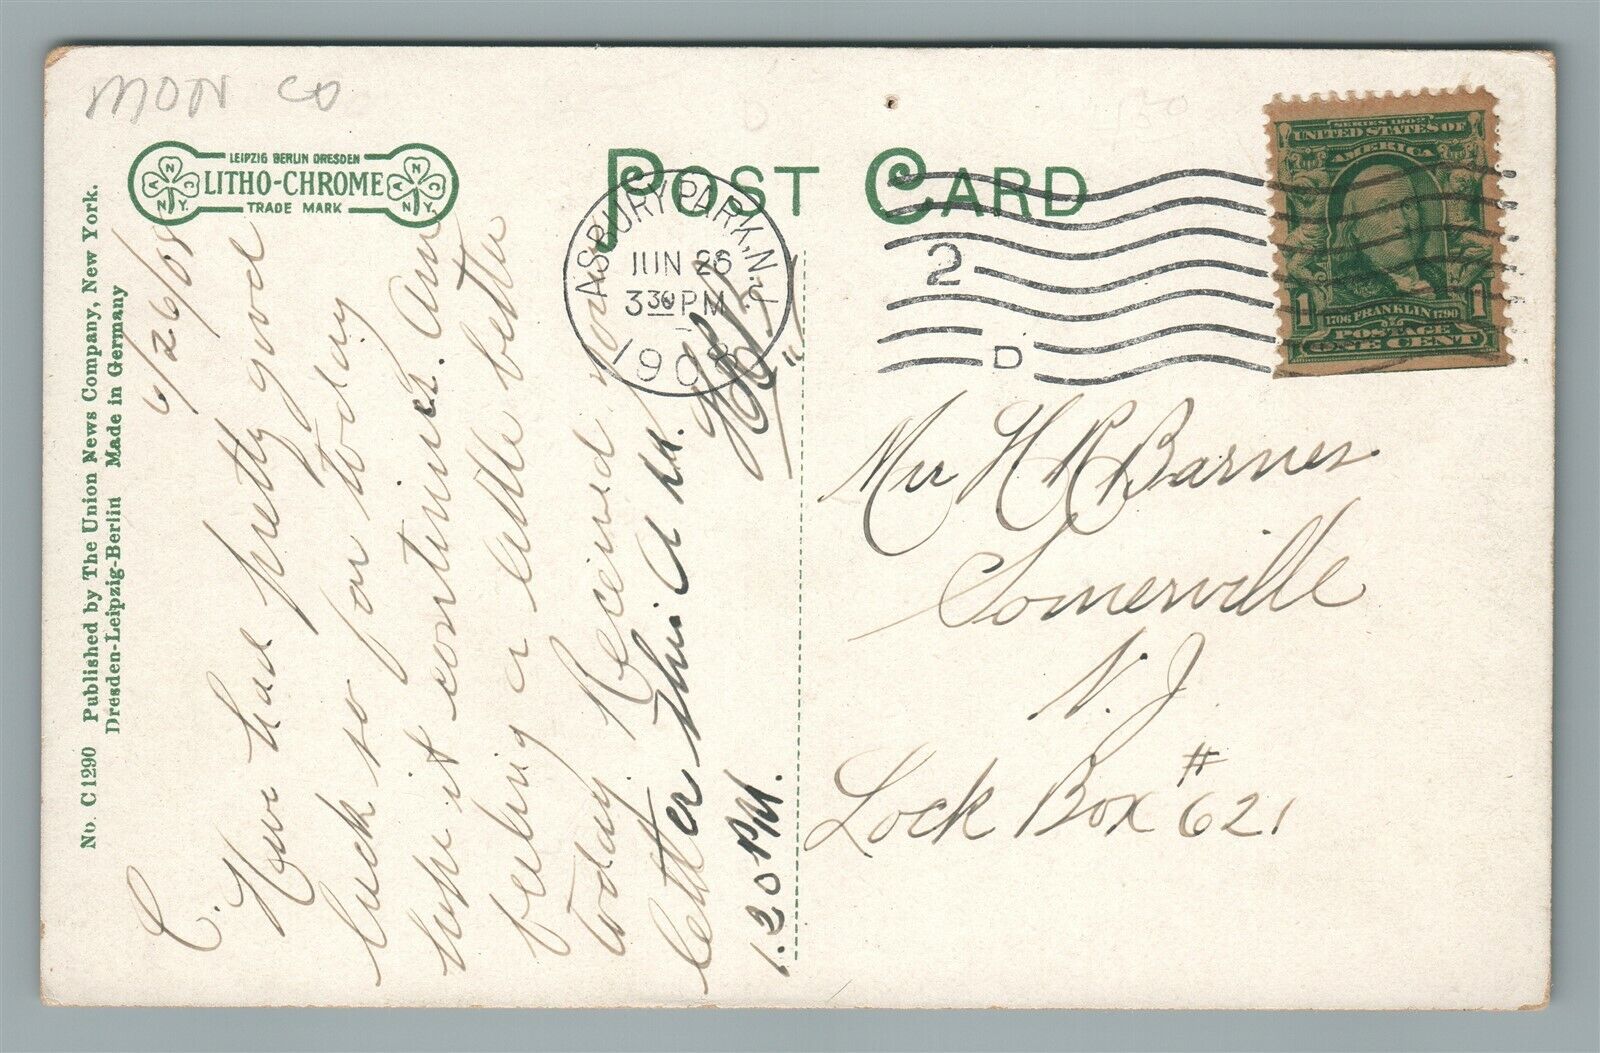 MON CO
LEIPZIG BERLIN DRESDEN
LITHO-CHROME
TRADE MARK
A N C N.Y.
A N C N.Y.
POST CARD
ASBURY PARK, N.J.
JUN 26
3 30 PM
1908
2
D
SERIES 1902
UNITED STATES OF
AMERICA
1706 FRANKLIN 1790
POSTAGE
1 ONE CENT 1
No. C1290 Published by The Union News Company, New York.
Dresden-Leipzig-Berlin Made in Germany
6/26/08
C. Have had pretty good
luck so far today
hope it continues. Am
feeling a little better
today. Received your
letter this A.M.
1.20 PM.
Mr H R Barnes
Somerville
N. J.
Lock Box # 621